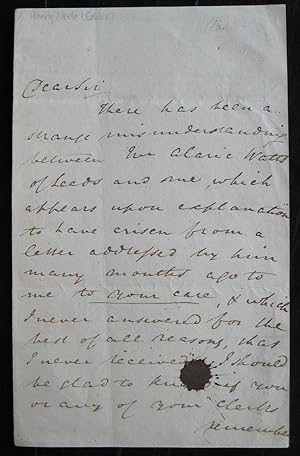 Henry Neele (Editor)
Dear Sir
There has been a
strange misunderstanding
between Mr Alaric Watts
of Leeds and me, which
appears upon explanation
to have arisen from a
letter addressed by him
many months ago to
me to your care, & which
I never answered for the
best of all reasons, that
I never received. I should
be glad to know if you
or any of your clerks
remember